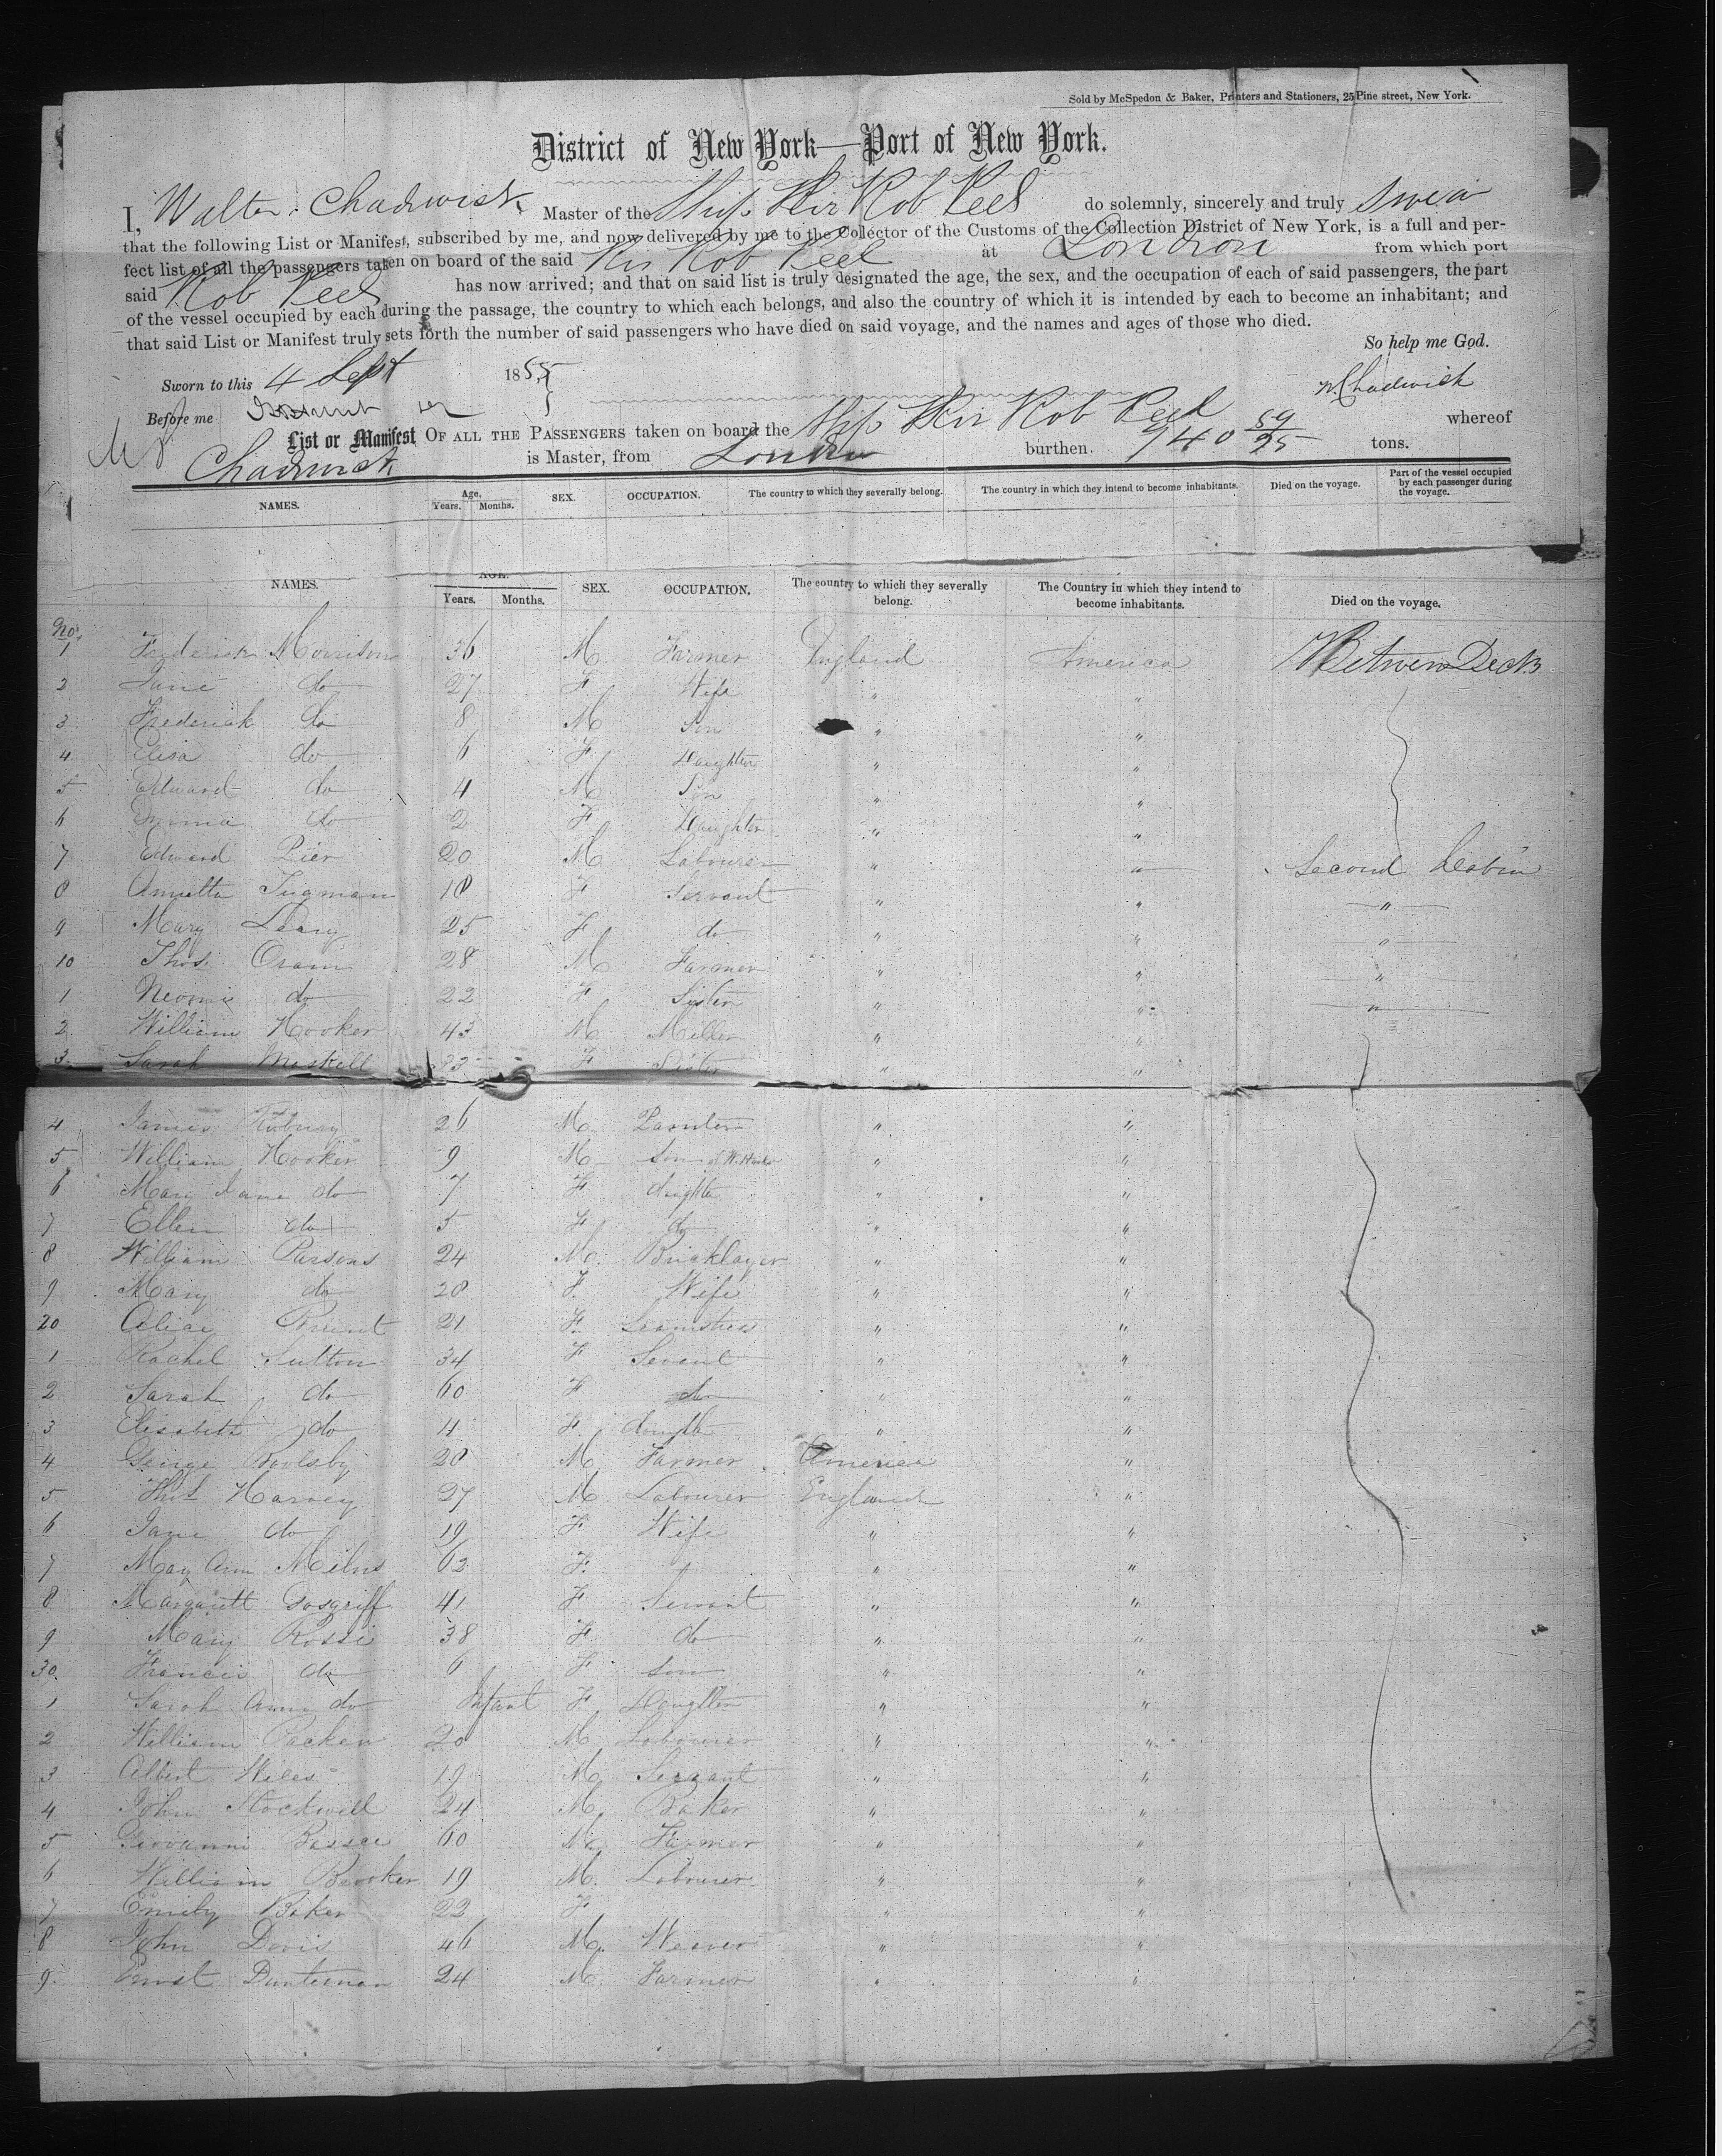 Sold by McSpedon & Baker, Printers and Stationers, 25 Pine street, New York.
District of New York—Port of New York.
I, Walter Chadwick Master of the Ship Sir Rob Peel do solemnly, sincerely and truly swear
that the following List or Manifest, subscribed by me, and now delivered by me to the Collector of the Customs of the Collection District of New York, is a full and per-
fect list of all the passengers taken on board of the said Sir Rob Peel at London from which port
said Rob Peel has now arrived; and that on said list is truly designated the age, the sex, and the occupation of each of said passengers, the part
of the vessel occupied by each during the passage, the country to which each belongs, and also the country of which it is intended by each to become an inhabitant; and
that said List or Manifest truly sets forth the number of said passengers who have died on said voyage, and the names and ages of those who died.
So help me God.
Sworn to this 4 Sept 1855
W Chadwick
Before me
List or Manifest OF ALL THE PASSENGERS taken on board the Ship Sir Rob Peel whereof
Chadwick is Master, from London burthen. 940 59/95 tons.
NAMES. Age. Years. Months. SEX. OCCUPATION. The country to which they severally belong. The country in which they intend to become inhabitants. Died on the voyage. Part of the vessel occupied by each passenger during the voyage.
NAMES. AGE. Years. Months. SEX. OCCUPATION. The country to which they severally belong. The Country in which they intend to become inhabitants. Died on the voyage.
No.
1 Frederick Morrison 36 M Farmer England America Between Decks
2 Jane do 27 F Wife " "
3 Frederick do 8 M Son " "
4 Elisa do 6 F Daughter " "
5 Edward do 4 M Son " "
6 Emma do 2 F Daughter " "
7 Edward Pier 20 M Labourer " " Second Cabin
8 Tugman 18 F Servant " " "
9 Mary Leary 25 F do " " "
10 Thos. Oram 28 M Farmer " " "
1 Neomi do 22 F Sister " " "
2 William Hooker 43 M Miller " "
3 Sarah Meskell F Sister " "
4 James 26 M. " "
5 William Hooker 9 M Son of W. Hooker " "
6 Mary Jane do 7 F daughter " "
7 Ellen do 5 F do " "
8 William Parsons 24 M. Bricklayer " "
9 Mary do 28 F. Wife " "
20 Alice 21 F. Seamstress " "
1 Rachel Sutton 34 F Sevant " "
2 Sarah do 60 F do " "
3 Elisabeth do 11 F. daughter " "
4 George 28 M. Farmer America "
5 Harvey 27 M Labourer England "
6 Jane do 19 F Wife " "
7 May Ann Milns 62 F. " "
8 Margarett Cosgriff 41 F Servant " "
9 Mary Rossi 38 F do " "
30. Francis do 6 F Son " "
1 Sarah Ann do Infant F Daughter " "
2 William Packer 20 M Labourer " "
3 Albert Wiles 19 M Servant " "
4 John Stockwell 24 M. Baker " "
5 Giovanni 60 M. Farmer " "
6 William Brooker 19 M. Labourer " "
7 Emily Baker 22 F " "
8 John Davis 46 M. Weaver " "
9 Ernst Dunteman 24 M Farmer " "